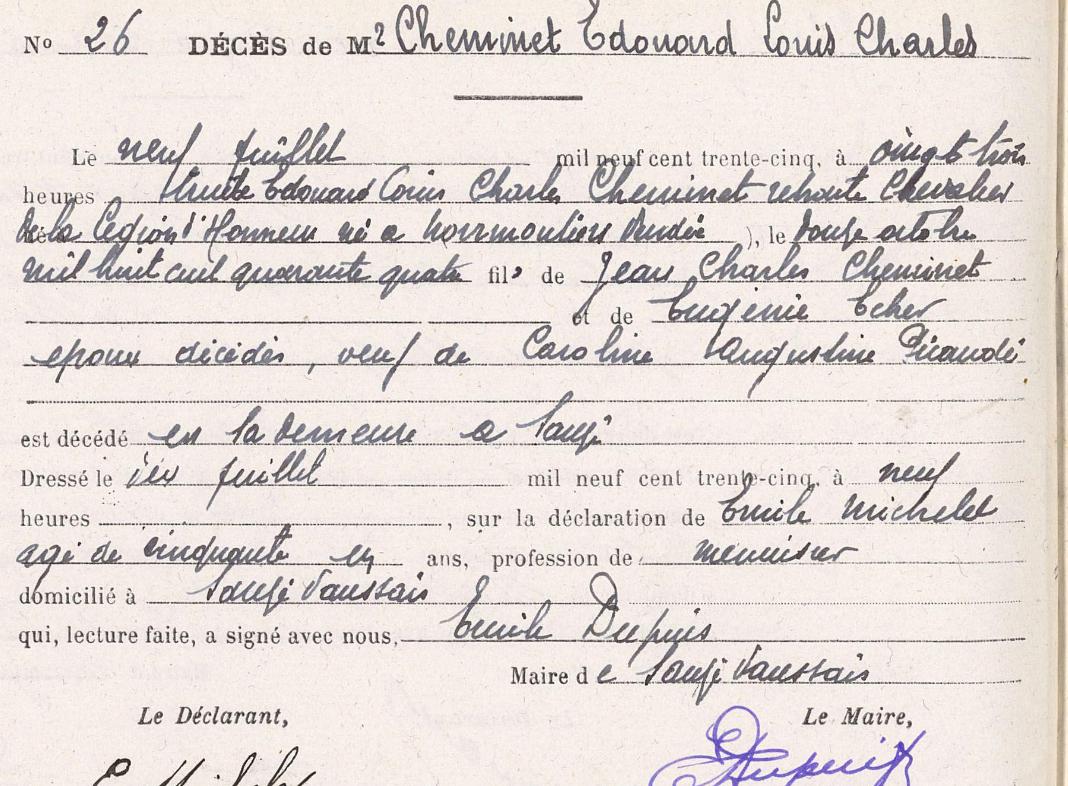 Nº 26 DÉCÈS de Mr Cheminet Edouard Louis Charles
Le neuf juillet mil neuf cent trente-cinq, à vingt trois
heures trente Edouard Louis Charles Cheminet retraité Chevalier
de la Légion d'Honneur né a Noirmoutiers Vendée ), le douze octobre
mil huit cent quarante quatre fils de Jean Charles Cheminet
et de Eugénie Echer
epoux décédés, veuf de Caroline Augustine
est décédé en sa demeure a Sauzé
Dressé le dix juillet mil neuf cent trente-cinq, à neuf
heures , sur la déclaration de Emile Michelet
agé de cinquante ans, profession de menuisier
domicilié à Sauzé Vaussais
qui, lecture faite, a signé avec nous, Emile Dupuis
Maire de Sauzé Vaussais
Le Déclarant, Le Maire,